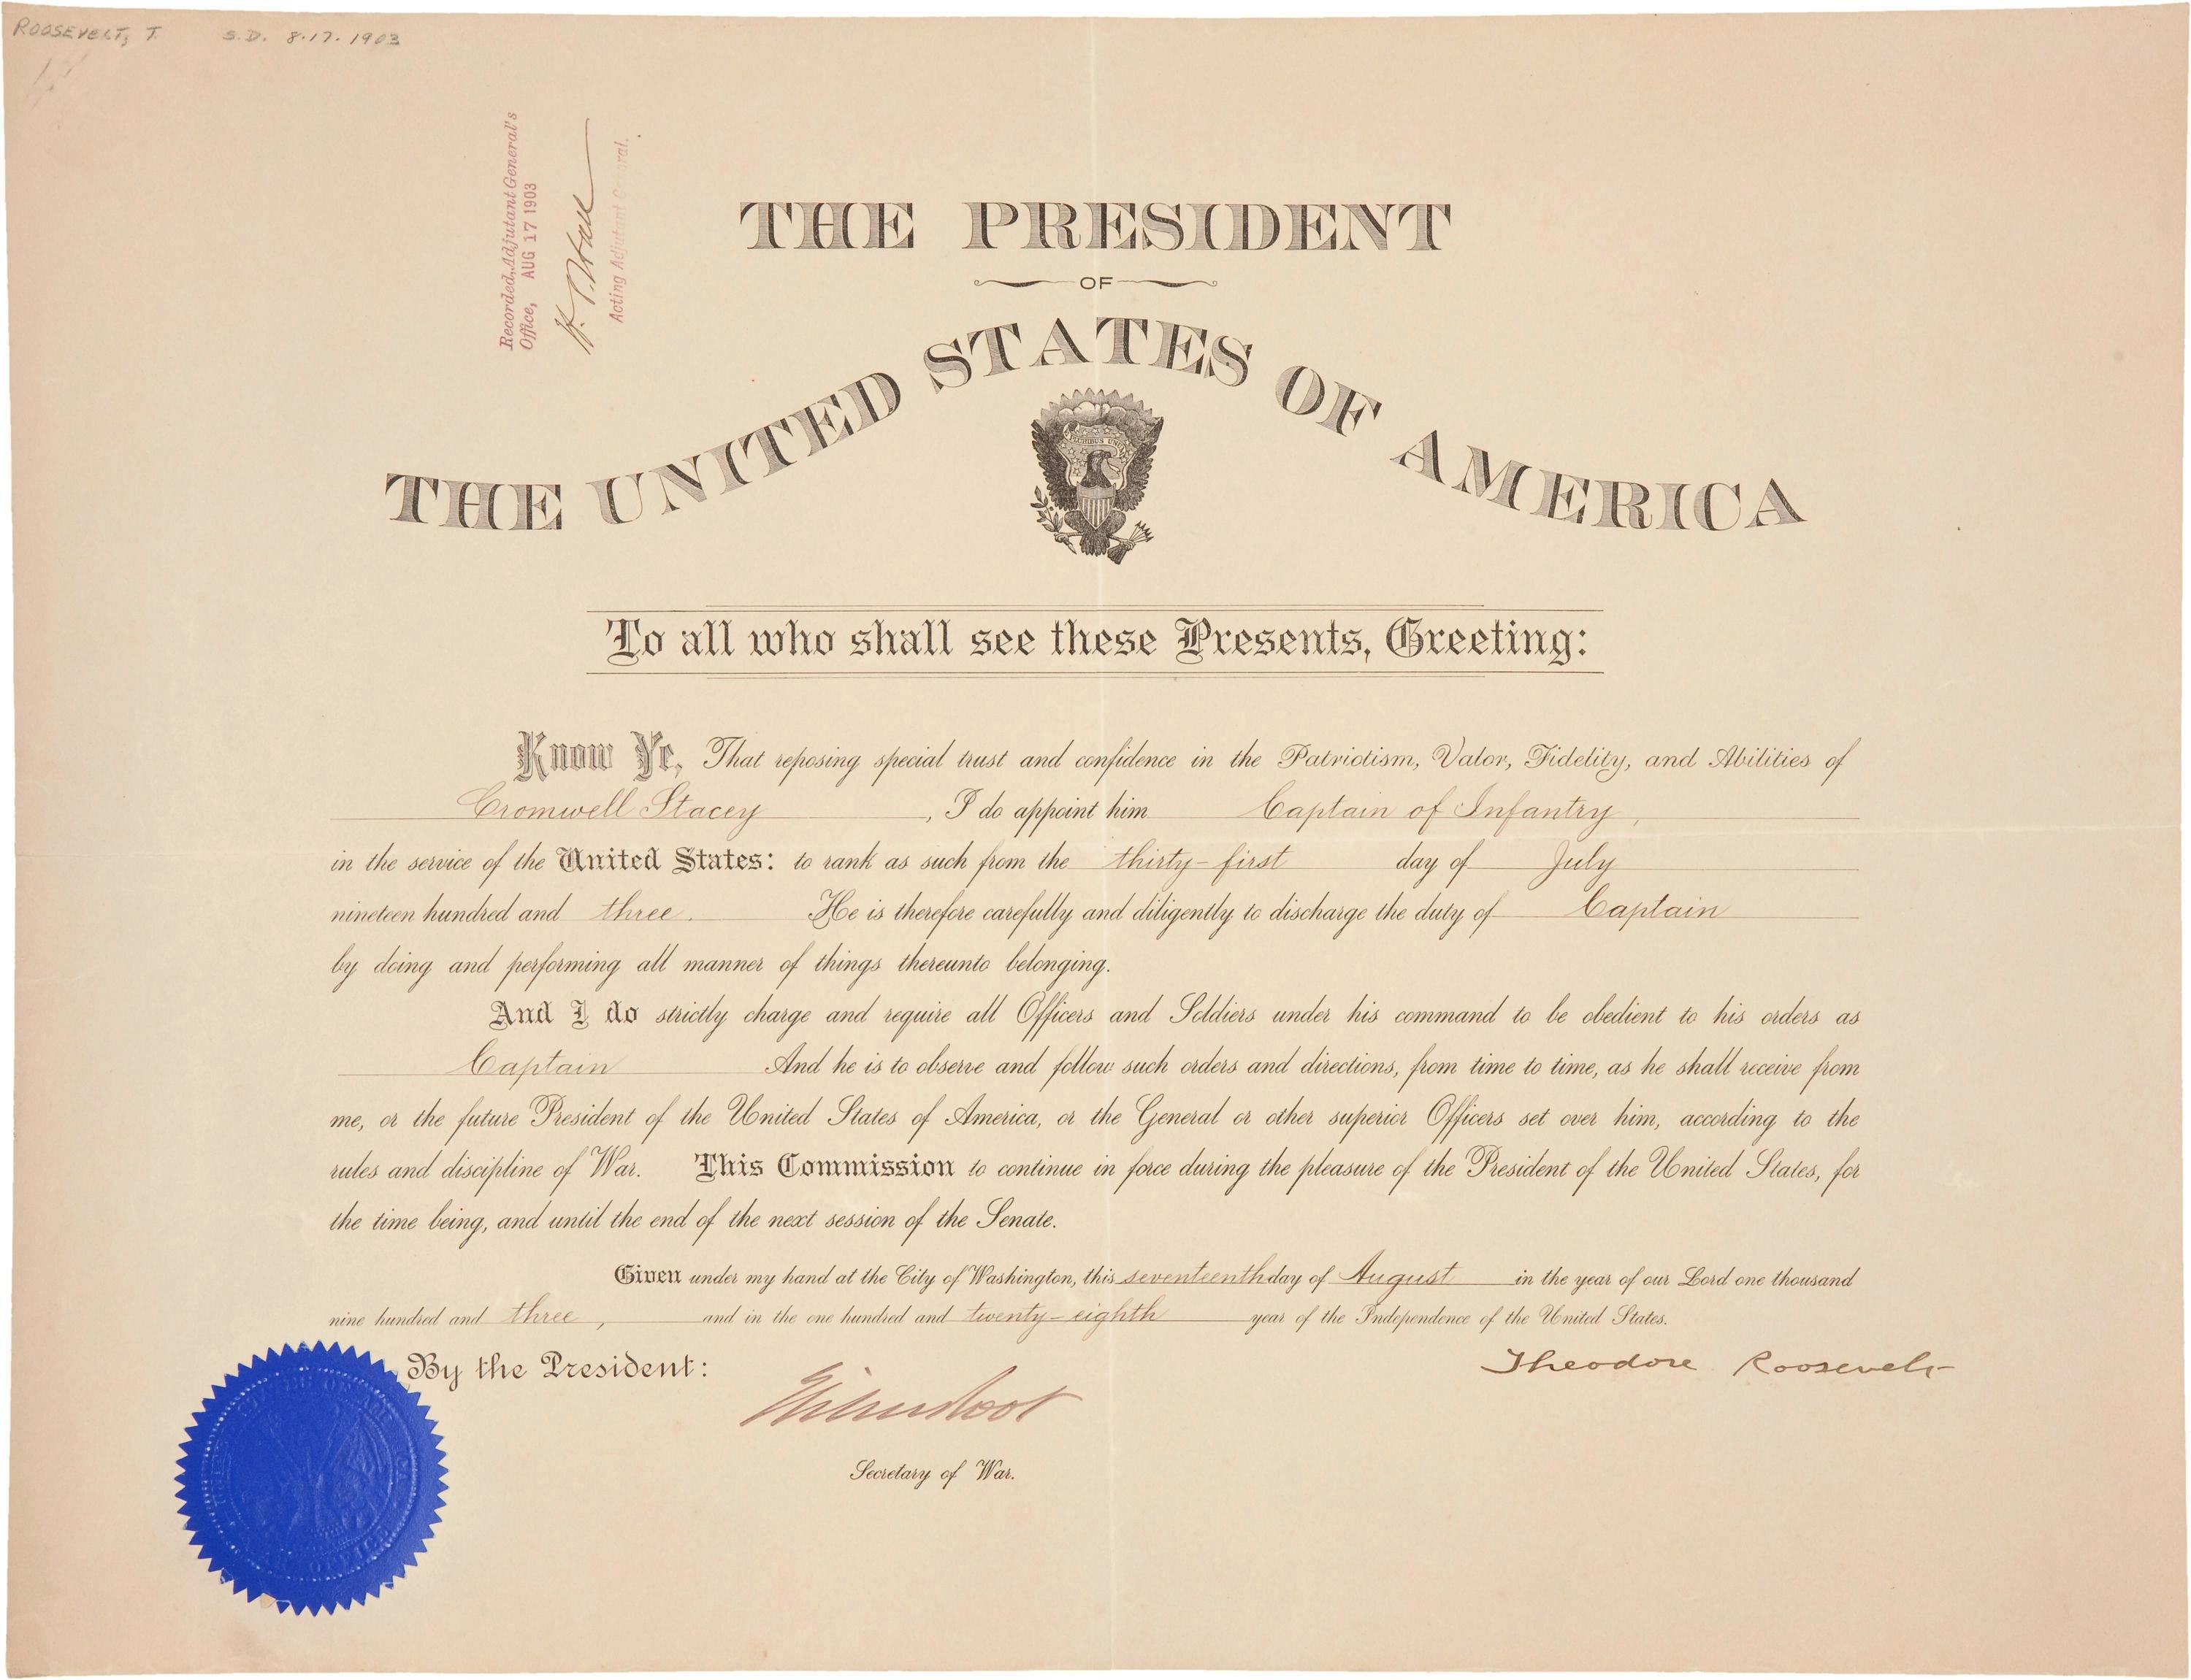 ROOSEVELT, T. S.D. 8.17.1903
Recorded, Adjutant General's
Office, AUG 17 1903
Acting Adjutant General.
THE PRESIDENT
OF
THE UNITED STATES OF AMERICA
To all who shall see these Presents, Greeting:
Know Ye, That reposing special trust and confidence in the Patriotism, Valor, Fidelity, and Abilities of
Cromwell Stacey, I do appoint him Captain of Infantry,
in the service of the United States: to rank as such from the thirty-first day of July
nineteen hundred and three. He is therefore carefully and diligently to discharge the duty of Captain
by doing and performing all manner of things thereunto belonging.
And I do strictly charge and require all Officers and Soldiers under his command to be obedient to his orders as
Captain And he is to observe and follow such orders and directions, from time to time, as he shall receive from
me, or the future President of the United States of America, or the General or other superior Officers set over him, according to the
rules and discipline of War. This Commission to continue in force during the pleasure of the President of the United States, for
the time being, and until the end of the next session of the Senate.
Given under my hand at the City of Washington, this seventeenth day of August in the year of our Lord one thousand
nine hundred and three, and in the one hundred and twenty-eighth year of the Independence of the United States.
By the President:
Theodore Roosevelt
Elihu Root
Secretary of War.